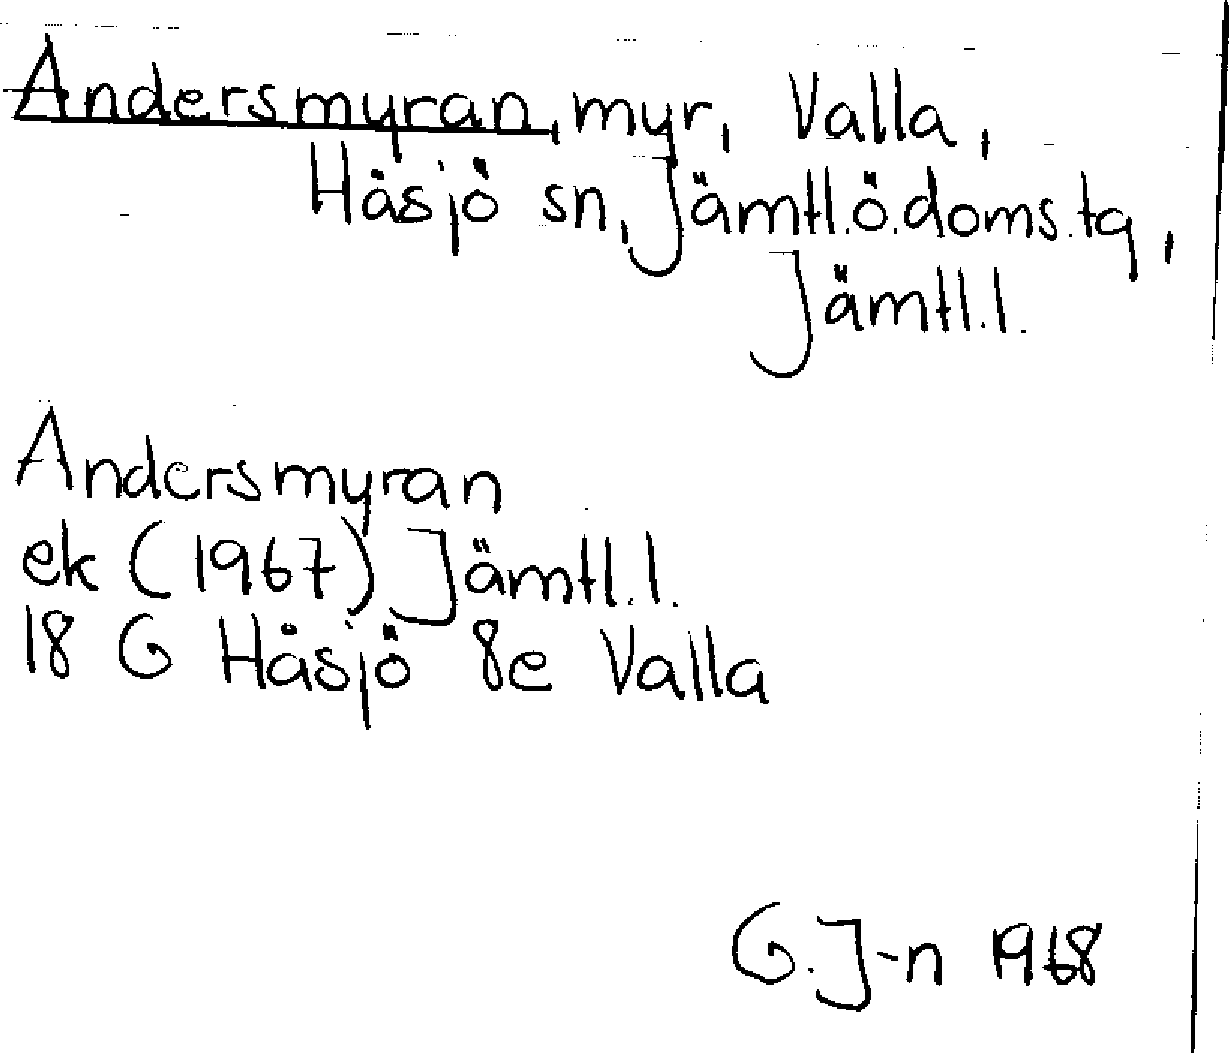 Andersmyran, myr, Valla,
Håsjö sn, Jämtl.ö.doms.tg,
Jämtl.l.
Andersmyran
ek (1967) Jämtl.l.
18 G Håsjö 8e Valla
G.J-n 1968